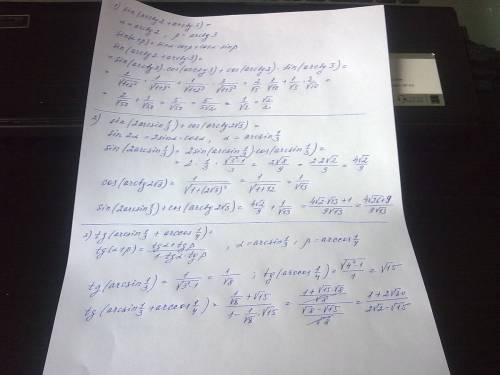 1) sin(arctg2 + arctg3) =
α = arctg2, β = arctg3
sin(α+β) = sinα·cosβ + cosα·sinβ
sin(arctg2 + arctg3) =
= sin(arctg2)·cos(arctg3) + cos(arctg2)·sin(arctg3) =
= 2/√5 · 1/√10 + 1/√5 · 3/√10 =
= 2/√50 + 3/√50 = 5/√50 = 5/5√2 = 1/√2 = √2/2
2) sin(2arcsin 1/3) + cos(arctg2√3) =
sin2α = 2sinα·cosα, α = arcsin 1/3
sin(2arcsin 1/3) = 2sin(arcsin 1/3)cos(arcsin 1/3) =
= 2·1/3·√(3²-1)/3 = 2√8/9 = 2·2√2/9 = 4√2/9
cos(arctg2√3) = 1/√(1+(2√3)²) = 1/√(1+12) = 1/√13
sin(2arcsin 1/3) + cos(arctg2√3) = 4√2/9 + 1/√13 = = 4√26+9/9√13
3) tg(arcsin 1/3 + arccos 1/4) =
tg(α+β) = tgα+tgβ/1-tgα·tgβ, α = arcsin 1/3, β = arccos 1/4
tg(arcsin 1/3) = 1/√(3²-1) = 1/√8; tg(arccos 1/4) = √(4²-1)/1 = √15
tg(arcsin 1/3 + arccos 1/4) = (1/√8 + √15)/(1 - 1/√8·√15) = ((1+√15·√8)/√8)/((√8-√15)/√8) = 1+2√30/2√2-√15